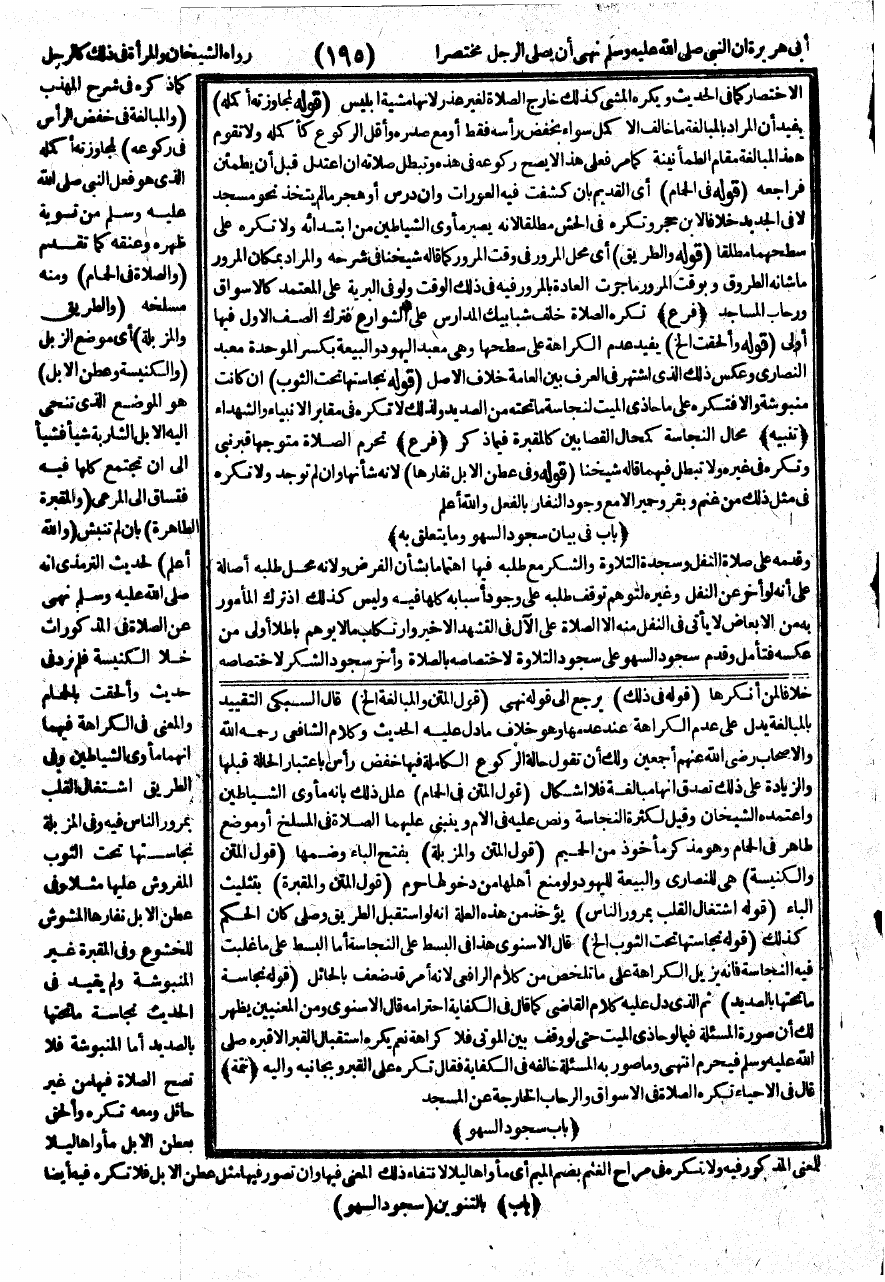 أبى هريرة ان النبى صلى الله عليه وسلم نهى أن يصلى الرجل مختصرا (١٩٥) رواه الشيخان والمرأة فى ذلك كالرجل
كما ذكره فى شرح المهذب
(والمبالغة فى خفض الرأس
فى ركوعه) لمجاوزته أكمله
الذى هو فعل النبى صلى الله
عليه وسلم من تسوية
ظهره وعنقه كما تقدم
(والصلاة فى الحمام) ومنه
مسلخه (والطريق
والمزبلة) أى موضع الزبل
(والكنيسة وعطن الابل)
هو الموضع الذى تنحى
اليه الابل الشاربة شيأ فشيأ
الى ان تجتمع كلها فيه
فتساق الى المرعى (والمقبرة
الطاهرة) بان لم تنبش (والله
أعلم) لحديث الترمذى انه
صلى الله عليه وسلم نهى
عن الصلاة فى المذكورات
خلا الكنيسة فلم ترد فى
حديث وألحقت بالحمام
والمعنى فى الكراهة فيهما
انهما مأوى الشياطين وفى
الطريق اشتغال القلب
بمرور الناس فيه وفى المزبلة
نجاستها تحت الثوب
المفروش عليها مثلا وفى
عطن الابل نفارها المشوش
للخشوع وفى المقبرة غير
المنبوشة ولم يقيد فى
الحديث نجاسة ماتحتها
بالصديد أما المنبوشة فلا
تصح الصلاة فيها من غير
حائل ومعه تكره وألحق
بعطن الابل مأواها ليلا
للمعنى المذكور فيه ولا تكره فى مراح الغنم بضم الميم أى مأواها ليلا لانتفاء ذلك المعنى فيها وان تصور فيها مثل عطن الابل فلا تكره فيه أيضا
(باب) بالتنوين (سجود السهو)
الاختصار كما فى الحديث ويكره المشى كذلك خارج الصلاة لغير عذر لانها مشية ابليس (قوله لمجاوزته أكمله)
يفيد أن المراد بالمبالغة ماخالف الاكمل سواء بخفض رأسه فقط أو مع صدره وأقل الركوع كأكمله ولا تقوم
هذه المبالغة مقام الطمأنينة كما مر فعلى هذا لا يصح ركوعه فى هذه وتبطل صلاته ان اعتدل قبل أن يطمئن
فراجعه (قوله فى الحمام) أى القديم بان كشفت فيه العورات وان درس أو هجر مالم يتخذ نحو مسجد
لا فى الجديد خلافا لابن حجر وتكره فى الحش مطلقا لانه يصير مأوى الشياطين من ابتدائه ولا تكره على
سطحهما مطلقا (قوله والطريق) أى محل المرور فى وقت المرور كما قاله شيخنا فى شرحه والمراد بمكان المرور
ماشأنه الطروق وبوقت المرور ماجرت العادة بالمرور فيه فى ذلك الوقت ولو فى البرية على المعتمد كالاسواق
ورحاب المساجد (فرع) تكره الصلاة خلف شبابيك المدارس على الشوارع فترك الصف الاول فيها
أولى (قوله وألحقت الخ) يفيد عدم الكراهة على سطحها وهى معبد اليهود والبيعة بكسر الموحدة معبد
النصارى وعكس ذلك الذى اشتهر فى العرف بين العامة خلاف الاصل (قوله نجاستها تحت الثوب) ان كانت
منبوشة والا فتكره على ماحاذى الميت لنجاسة ماتحته من الصديد ولذلك لا تكره فى مقابر الانبياء والشهداء
(تنبيه) محال النجاسة كمحال القصابين كالمقبرة فيما ذكر (فرع) تحرم الصلاة متوجها قبر نبى
وتكره فى غيره ولا تبطل فيهما قاله شيخنا (قوله وفى عطن الابل نفارها) لانه شأنها وان لم توجد ولا تكره
فى مثل ذلك من غنم وبقر وحمير الا مع وجود النفار بالفعل والله أعلم
(باب فى بيان سجود السهو وما يتعلق به)
وقدمه على صلاة النفل وسجدة التلاوة والشكر مع طلبه فيها اهتماما بشأن الفرض ولانه محل طلبه أصالة
على أنه لو أخر عن النفل وغيره لتوهم توقف طلبه على وجود أسبابه كلها فيه وليس كذلك اذ ترك المأمور
به من الابعاض لا يأتى فى النفل منه الا الصلاة على الآل فى التشهد الاخير وارتكاب مالا يوهم باطلا أولى من
عكسه فتأمل وقدم سجود السهو على سجود التلاوة لاختصاصه بالصلاة وأخر سجود الشكر لاختصاصه
خلافا لمن أنكرها (قوله فى ذلك) يرجع الى قوله نهى (قول المتن والمبالغة الخ) قال السبكى التقييد
بالمبالغة يدل على عدم الكراهة عند عدمها وهو خلاف مادل عليه الحديث وكلام الشافعى رحمه الله
والاصحاب رضى الله عنهم أجمعين ولك أن تقول حالة الركوع الكاملة فيها خفض رأس باعتبار الحالة قبلها
والزيادة على ذلك تصدق انها مبالغة فلا اشكال (قول المتن فى الحمام) علل ذلك بانه مأوى الشياطين
واعتمده الشيخان وقيل لكثرة النجاسة ونص عليه فى الام وينبنى عليهما الصلاة فى المسلخ أو موضع
طاهر فى الحمام وهو مذكر مأخوذ من الحميم (قول المتن والمزبلة) بفتح الباء وضمها (قول المتن
والكنيسة) هى للنصارى والبيعة لليهود ولو منع أهلها من دخولها حرم (قول المتن والمقبرة) بتثليث
الباء (قوله اشتغال القلب بمرور الناس) يؤخذ من هذه العلة انه لو استقبل الطريق وصلى كان الحكم
كذلك (قوله نجاستها تحت الثوب الخ) قال الاسنوى هذا فى البسط على النجاسة أما البسط على ماغلبت
فيه النجاسة فانه يزيل الكراهة على ماتلخص من كلام الرافعى لانه أمر قد ضعف بالحائل (قوله نجاسة
ماتحتها بالصديد) ثم الذى دل عليه كلام القاضى كما قال فى الكفاية احترامه قال الاسنوى ومن المعنيين يظهر
لك أن صورة المسئلة فيما لو حاذى الميت حتى لو وقف بين الموتى فلا كراهة نعم يكره استقبال القبر الا قبره صلى
الله عليه وسلم فيحرم انتهى وما صور به المسئلة خالفه فى الكفاية فقال تكره على القبر وبجانبه واليه (تتمة)
قال فى الاحياء تكره الصلاة فى الاسواق والرحاب الخارجة عن المسجد
(باب سجود السهو)